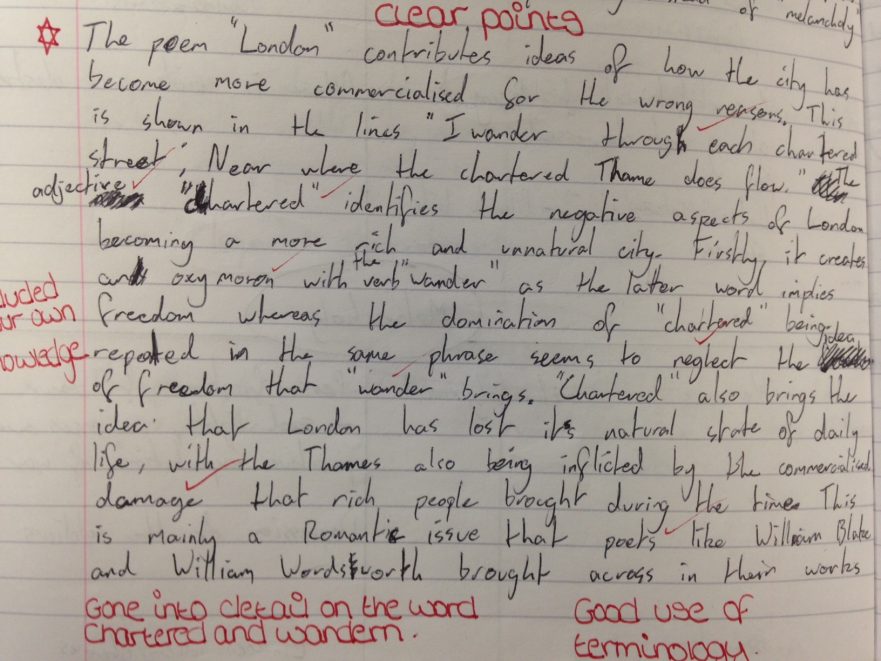 of melancholy"
clear points
The poem "London" contributes ideas of how the city has
become more commercialised for the wrong reasons. This
is shown in the lines "I wander through each chartered
street; Near where the chartered Thame does flow." The
adjective "chartered" identifies the negative aspects of London
becoming a more rich and unnatural city. Firstly, it creates
an oxymoron with the verb "wander" as the latter word implies
freedom whereas the domination of "chartered" being
repeated in the same phrase seems to neglect the idea
of freedom that "wander" brings. "Chartered" also brings the
idea that London has lost its natural state of daily
life, with the Thames also being inflicted by the commercialised
damage that rich people brought during the time. This
is mainly a Romantic issue that poets like William Blake
and William Wordsworth brought across in their works
luded
ur own
nowledge
Gone into detail on the word
chartered and wandern.
Good use of
terminology.